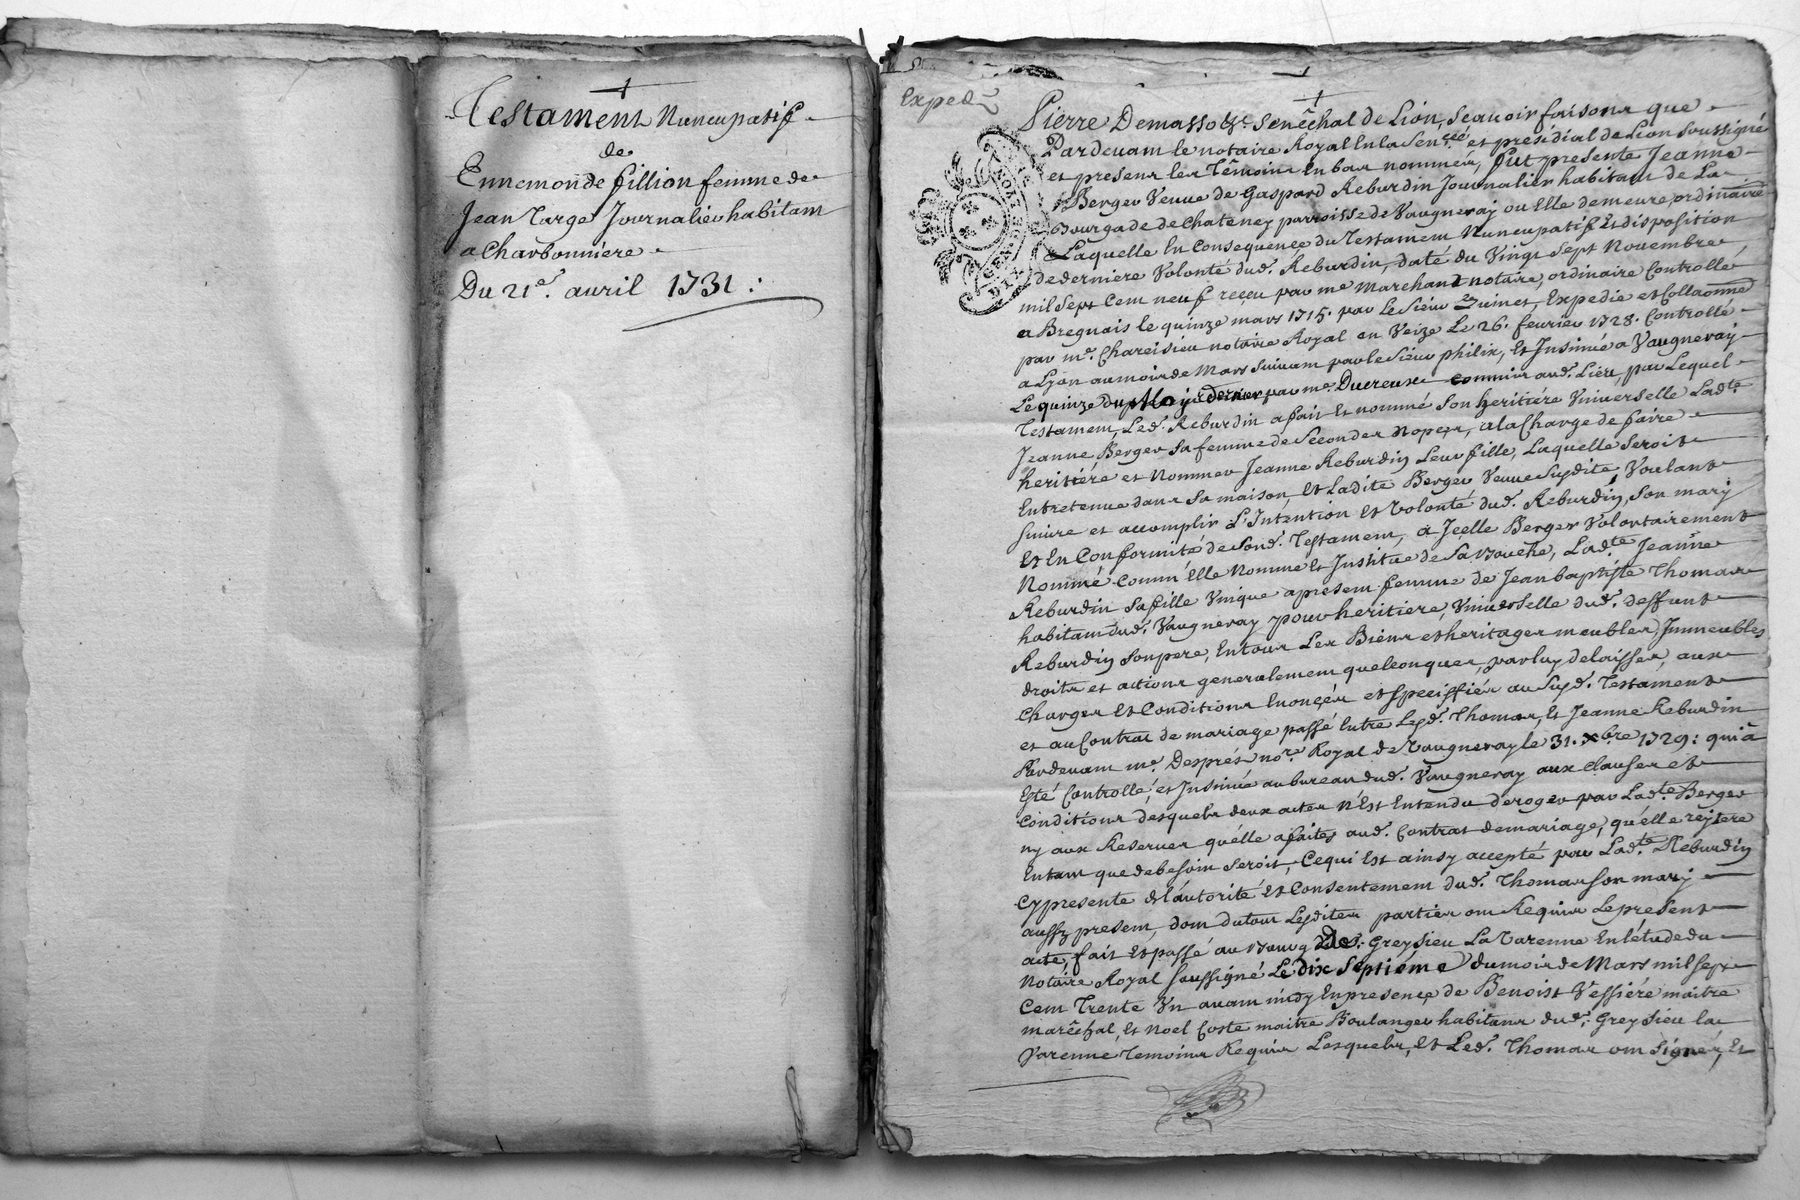 Testament Nuncupatif
de
Ennemonde fillion femme de
Jean Targe Journalier habitant
a Charbonniere
Du 21e. avril 1731 :
Exped
Pierre Demasso &c. Senêchal de Lion, Scauoir faisons que
Pardeuant le notaire Royal En la Senccé. et présidial de Lion Soussigné
et presens les Têmoins En bas nommés, fut presente Jeanne
Berger Veuve de Gaspard Reburdin Journalier habitant de La
Bourgade de Chateney parroisse de Vaugneray ou Elle demeure, ordinaire
Laquelle En Consequence du Testament Nuncupatif Et disposition
de derniere Volonté dud. Reburdin, daté du Vingt Sept Nouembre
mil Sept Cent neuf reçeu par me Marchand notaire, ordinaire Controllé
a Bregnais le quinze mars 1715. par Le Sieur Quinet, Expedie et Collaonné
par me. Chareisieu notaire Royal en Veize Le 26. feurier 1728. Controllé
a Lyon au mois de Mars Suiuant par le Sieur philix, Et Insinué a Vaugneray
Le quinze du Moy dernier par me. Ducreux commis aud. Lieu, par Lequel
Testament, Led. Reburdin a fait Et nommé Son heritiére Vniuerselle Ladte
Jeanne Berger Sa femme de Secondes Nopces, a la Charge de faire
heritiére et Nommer Jeanne Reburdin Leur fille, Laquelle Seroit
Entretenue dans Sa maison, Et Ladite Berger Veuve Susdite, Voulant
Suiure et accomplir L'Intention Et Volonté dud. Reburdin, Son mary
Et En Conformité de Sond. Testament, a Icelle Berger Volontairement
Nommé Comm'Elle Nomme Et Institue de Sa Bouche, Ladte Jeanne
Reburdin Sa fille Vnique a present femme de Jean baptiste Thomas
habitant dud. Vaugneray pour heritiere, Vniuerselle dud. deffunt
Reburdin Son pere, En tous Les Biens et heritages meubles, Immeubles
droits et actions generalement quelconques, par luy delaisses, aux
Charges Et Conditions Enonçées et Speciffiés au Susd. Testament
et au Contrat de mariage passé Entre Lesd. Thomas, Et Jeanne Reburdin
Pardeuant me. Després nore. Royal de Vaugneray le 31. Xbre 1729 : qui a
Esté Controllé, et Insinué au bureau dud. Vaugneray aux clauses et
Conditions desquels deux actes N'Est Entendu deroger par Ladte. Berger
ny aux Reserues qu'elle a faites aud. Contrat de mariage, qu'elle reÿtere
En tant que de besoin Seroit, Ce qui Est ainsy accepté par Ladte. Reburdin
Cy presente de L'autorité Et Consentement dud. Thomas son mary
aussy present, dont du tout Lesdites parties ont Requis Le present
acte, fait Et passé au Bourg De. Greysieu La Varenne En L'étude du
Notaire Royal Soussigné Le dix Septiéme du mois de Mars mil Sept
Cent Trente Vn auant midy En presence de Benoist Vessiére maitre
marêchal, Et Noel Coste maitre Boulanger habitans dud. Greysieu la
Varenne Temoins Requis Lesquels, Et Led. Thomas ont Signés, Et